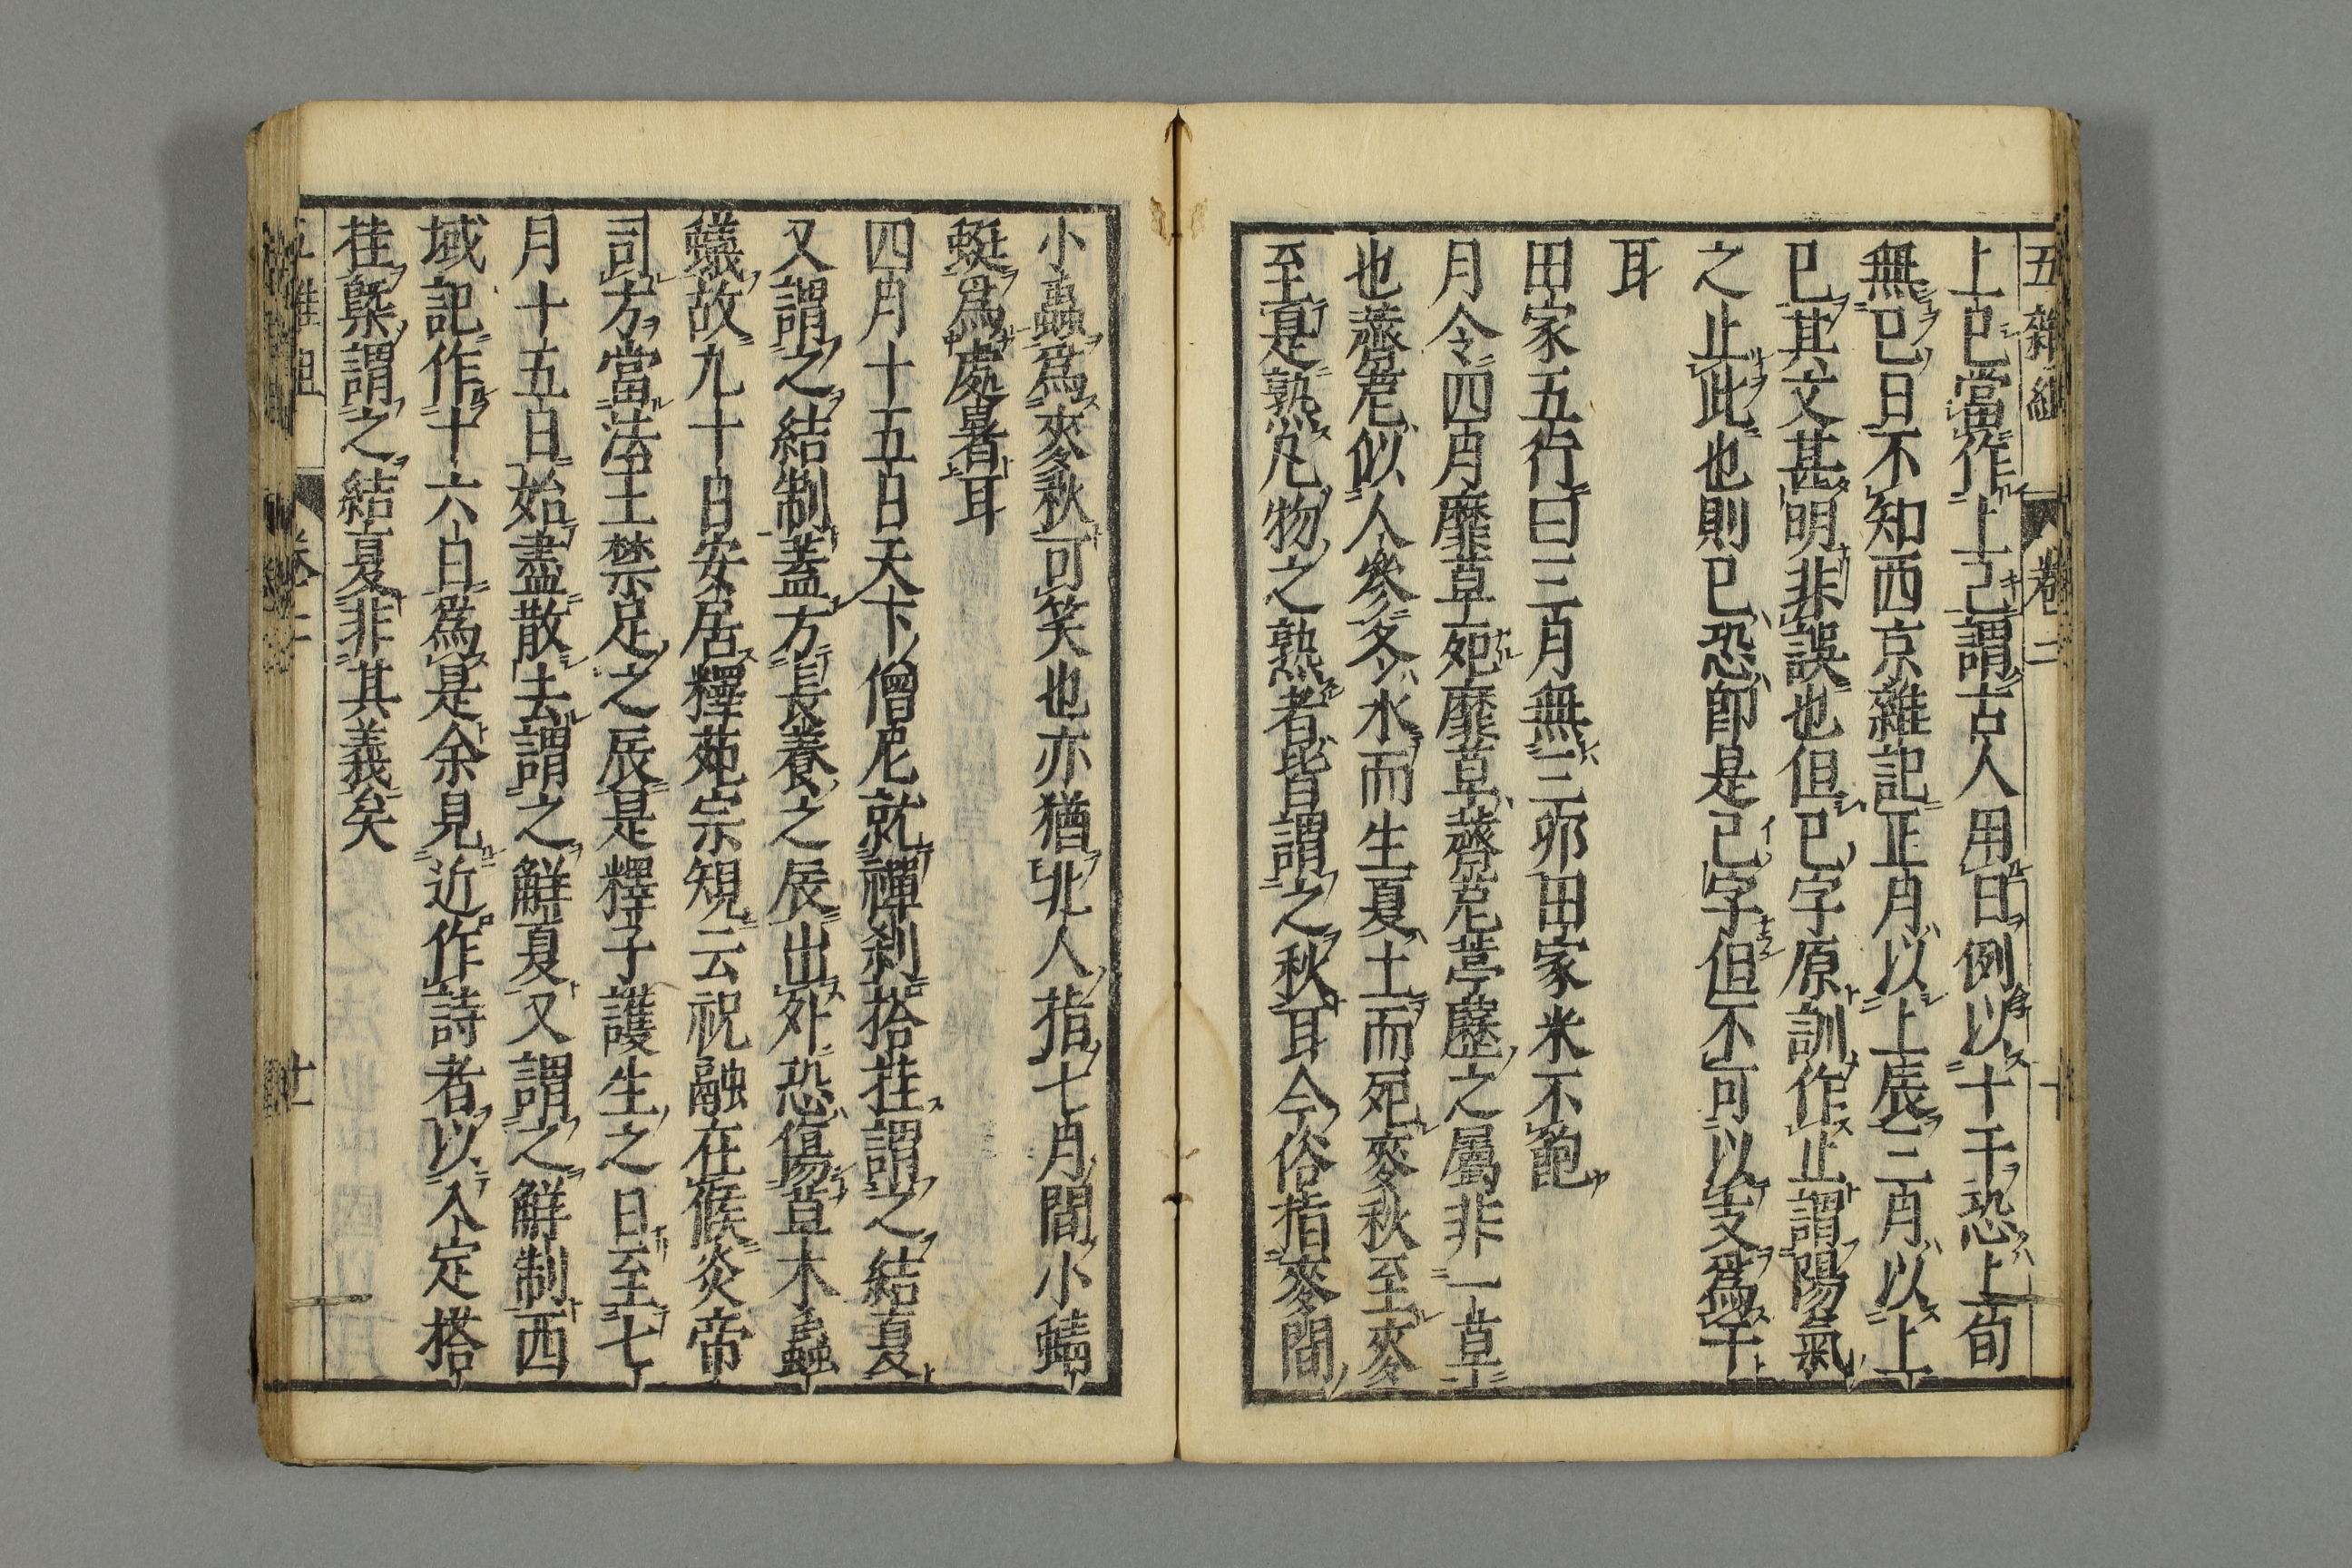 五雜組 卷二
上巳當作上己謂古人用日例以十干恐上旬
無巳日不知西京雜記正月以上辰三月以上
巳其文甚明非誤也但巳字原訓作止謂陽氣
之止此也則巳恐卽是己字但不可以支爲干
耳
田家五行曰三月無三卯田家米不飽
月令四月靡草死靡草薺苨葶藶之屬非一草
也薺苨似人參冬水而生夏土而死麥秋至麥
至是熟凡物之熟者皆謂之秋耳今俗指麥間
小蟲爲麥秋可笑也亦猶北人指七月間小蜻
蜓爲處暑耳
四月十五日天下僧尼就禪刹搭挂謂之結夏
又謂之結制蓋方長養之辰出外恐傷草木蟲
蟻故九十日安居釋苑宗規云祝融在候炎帝
司方當法王禁足之辰是釋子護生之日至七
月十五日始盡散去謂之解夏又謂之解制西
域記作十六日爲是余見近作詩者以入定搭
挂槩謂之結夏非其義矣
五雜組 卷二